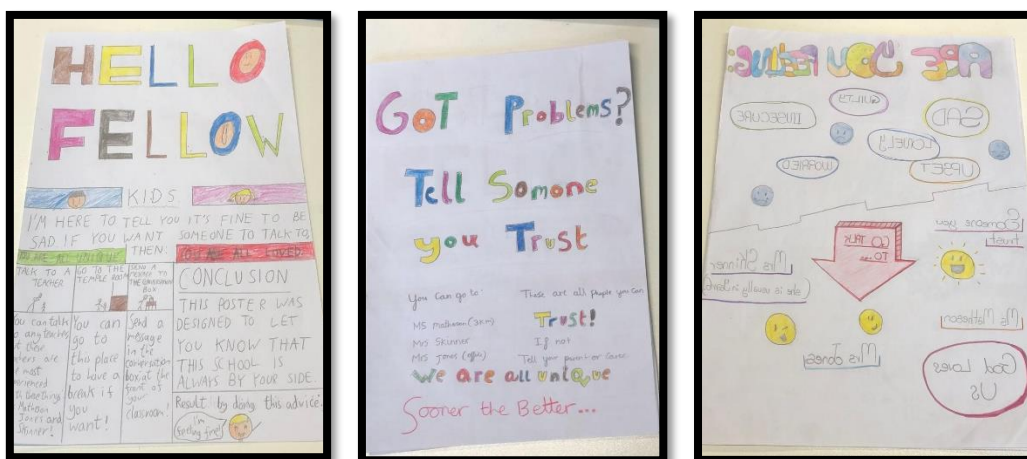 HELLO
FELLOW
KIDS
I'M HERE TO TELL YOU IT'S FINE TO BE
SAD. IF YOU WANT SOMEONE TO TALK TO,
THEN.
TALK TO A
TEACHER
GO TO THE
TEMPLE ROOM
SEND A
BOX
You can talk
to any teacher
You can
go to
this place
to have a
break if
you
want!
Send a
message
in the
box at the
front of
your
classroom!
CONCLUSION
THIS POSTER WAS
DESIGNED TO LET
YOU KNOW THAT
THIS SCHOOL IS
ALWAYS BY YOUR SIDE.
Result by doing this advice:
I'm
feeling fine!
GOT Problems?
Tell Somone
you Trust
You can go to:
MS Matheson
Mrs Skinner
Mrs Jones (office)
These are all people you can
Trust!
If not
Tell your parent or carer
We are all unique
Sooner the Better...
ARE YOU FEELING:
GUILTY
INSECURE
SAD
LONELY
WORRIED
UPSET
GO TALK
TO...
Someone you
trust
Mrs Skinner
(she is usually in
Ms Matheson
Mrs Jones
God Loves
Us